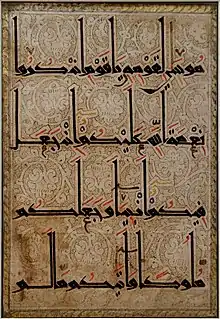 موسى لقومه يا قوم اذكروا
نعمة الله عليكم اذ جعل
فيكم انبياء وجعلكم
ملوكا واتيكم ما لم